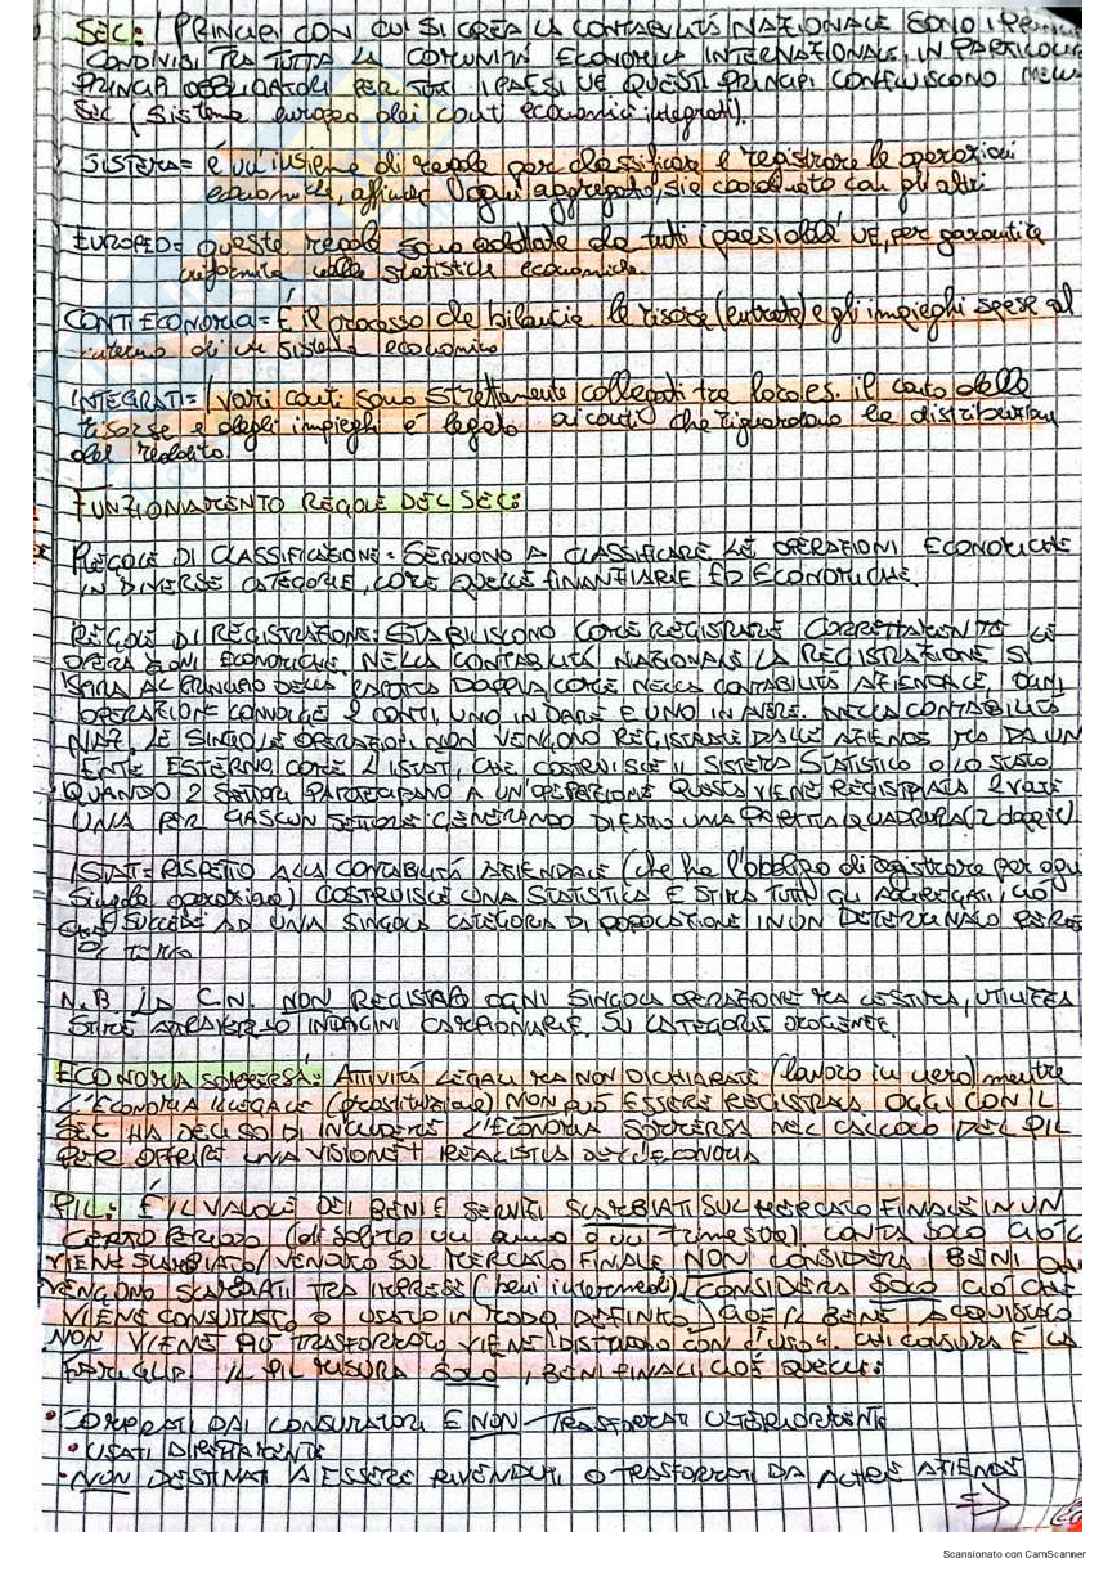 SEC: I PRINCIPI CON CUI SI CREA LA CONTABILITÁ NAZIONALE SONO I
CONDIVISI TRA TUTTA LA COMUNITÁ ECONOMICA INTERNAZIONALE, IN PARTICOLARE
PRINCIPI OBBLIGATORI PER TUTTI I PAESI UE QUESTI PRINCIPI CONFLUISCONO NELLA
SEC (Sistema europeo dei conti economici integrati).
SISTEMA = é un insieme di regole per classificare e registrare le operazioni
economiche, affinché ogni aggregato, sia coordinato con gli altri
EUROPEO = queste regole sono adottate da tutti i paesi della UE, per garantire
uniformità nelle statistiche economiche.
CONTI ECONOMICI = É il processo che bilancia le risorse (entrate) e gli impieghi spese al
interno di un sistema economico
INTEGRATI = I vari conti sono strettamente collegati tra loro es. il conto delle
risorse e degli impieghi é legato ai conti che riguardano la distribuzione
del reddito.
FUNZIONAMENTO REGOLE DEL SEC:
REGOLE DI CLASSIFICAZIONE = SERVONO A CLASSIFICARE LE OPERAZIONI ECONOMICHE
IN DIVERSE CATEGORIE, COME QUELLE FINANZIARIE ED ECONOMICHE.
REGOLE DI REGISTRAZIONE: STABILISCONO COME REGISTRARE CORRETTAMENTE LE
OPERAZIONI ECONOMICHE NELLA CONTABILITÁ NAZIONALE LA REGISTRAZIONE SI
AL PRINCIPIO DELLA PARTITA DOPPIA COME NELLA CONTABILITÁ AZIENDALE, OGNI
OPERAZIONE COINVOLGE 2 CONTI, UNO IN DARE E UNO IN AVERE. NELLA CONTABILITÁ
NAZ. LE SINGOLE OPERAZIONI NON VENGONO REGISTRATE DALLE AZIENDE MA DA UN
ENTE ESTERNO, COME L'ISTAT, CHE COSTRUISCE IL SISTEMA STATISTICO O LO STATO
QUANDO 2 SETTORI PARTECIPANO A UN'OPERAZIONE QUESTA VIENE REGISTRATA 2 VOLTE
UNA PER CIASCUN SETTORE GENERANDO DI FATTO UNA PARTITA QUADRUPLA (2 doppie)
ISTAT = RISPETTO ALLA CONTABILITÁ AZIENDALE (che ha l'obbligo di registrare per ogni
singola operazione) COSTRUISCE UNA STATISTICA E STIMA TUTTI GLI AGGREGATI, CIÓ
CHE SUCCEDE AD UNA SINGOLA CATEGORIA DI POPOLAZIONE IN UN DETERMINATO PERIODO
DI TEMPO
N.B. LA C.N. NON REGISTRA OGNI SINGOLA OPERAZIONE MA LE STIMA, UTILIZZA
STIME ATTRAVERSO INDAGINI CAMPIONARIE SU CATEGORIE OMOGENEE.
ECONOMIA SOMMERSA: ATTIVITÁ LEGALI MA NON DICHIARATE (lavoro in nero) mentre
L'ECONOMIA ILLEGALE (prostituzione) NON PUÓ ESSERE REGISTRATA. OGGI CON IL
SEC HA DECISO DI INCLUDERE L'ECONOMIA SOMMERSA NEL CALCOLO DEL PIL
PER OFFRIRE UNA VISIONE + REALISTICA DELL'ECONOMIA
PIL: É IL VALORE DEI BENI E SERVIZI SCAMBIATI SUL MERCATO FINALE IN UN
CERTO PERIODO (di solito un anno o un trimestre). CONTA SOLO CIÓ CHE
VIENE SCAMBIATO/VENDUTO SUL MERCATO FINALE NON CONSIDERA I BENI CHE
VENGONO SCAMBIATI TRA IMPRESE (beni intermedi) (CONSIDERA SOLO CIÓ CHE
VIENE CONSUMATO O USATO IN MODO DEFINITO) CIOÉ IL BENE ACQUISTATO
NON VIENE PIÚ TRASFORMATO VIENE "DISTRUTTO CON L'USO". CHI CONSUMA É LA
FAMIGLIA. IL PIL MISURA SOLO I BENI FINALI CIOÉ QUELLI:
• COMPRATI DAI CONSUMATORI E NON TRASFORMATI ULTERIORMENTE
• USATI DIRETTAMENTE
• NON DESTINATI A ESSERE RIVENDUTI O TRASFORMATI DA ALTRE AZIENDE
Scansionato con CamScanner